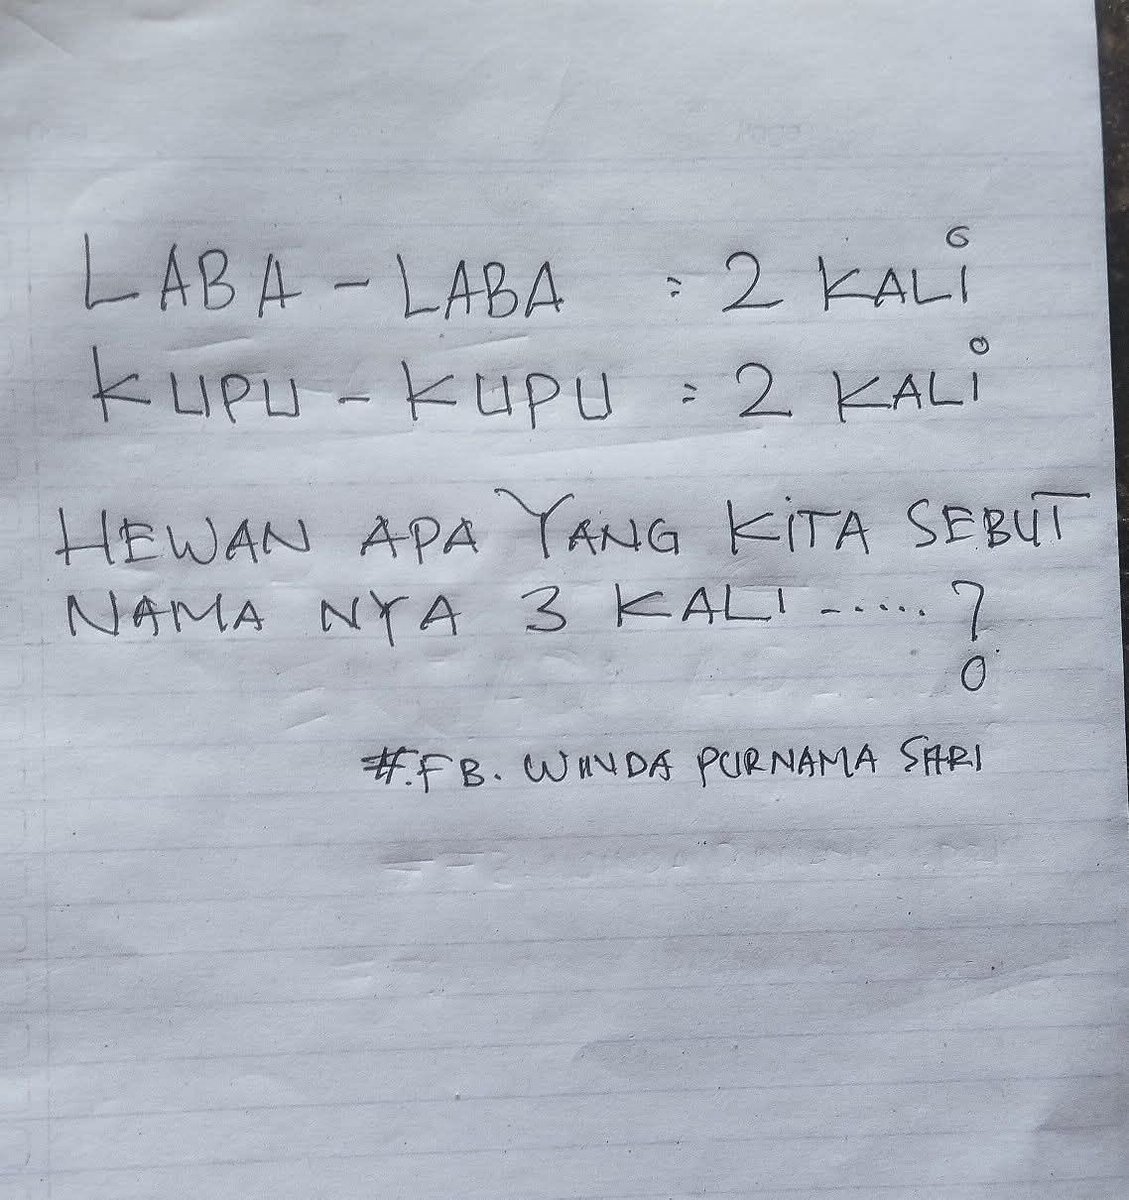 LABA - LABA : 2 KALI
KUPU - KUPU : 2 KALI
HEWAN APA YANG KITA SEBUT
NAMA NYA 3 KALI ...... ?
#.FB. WINDA PURNAMA SARI